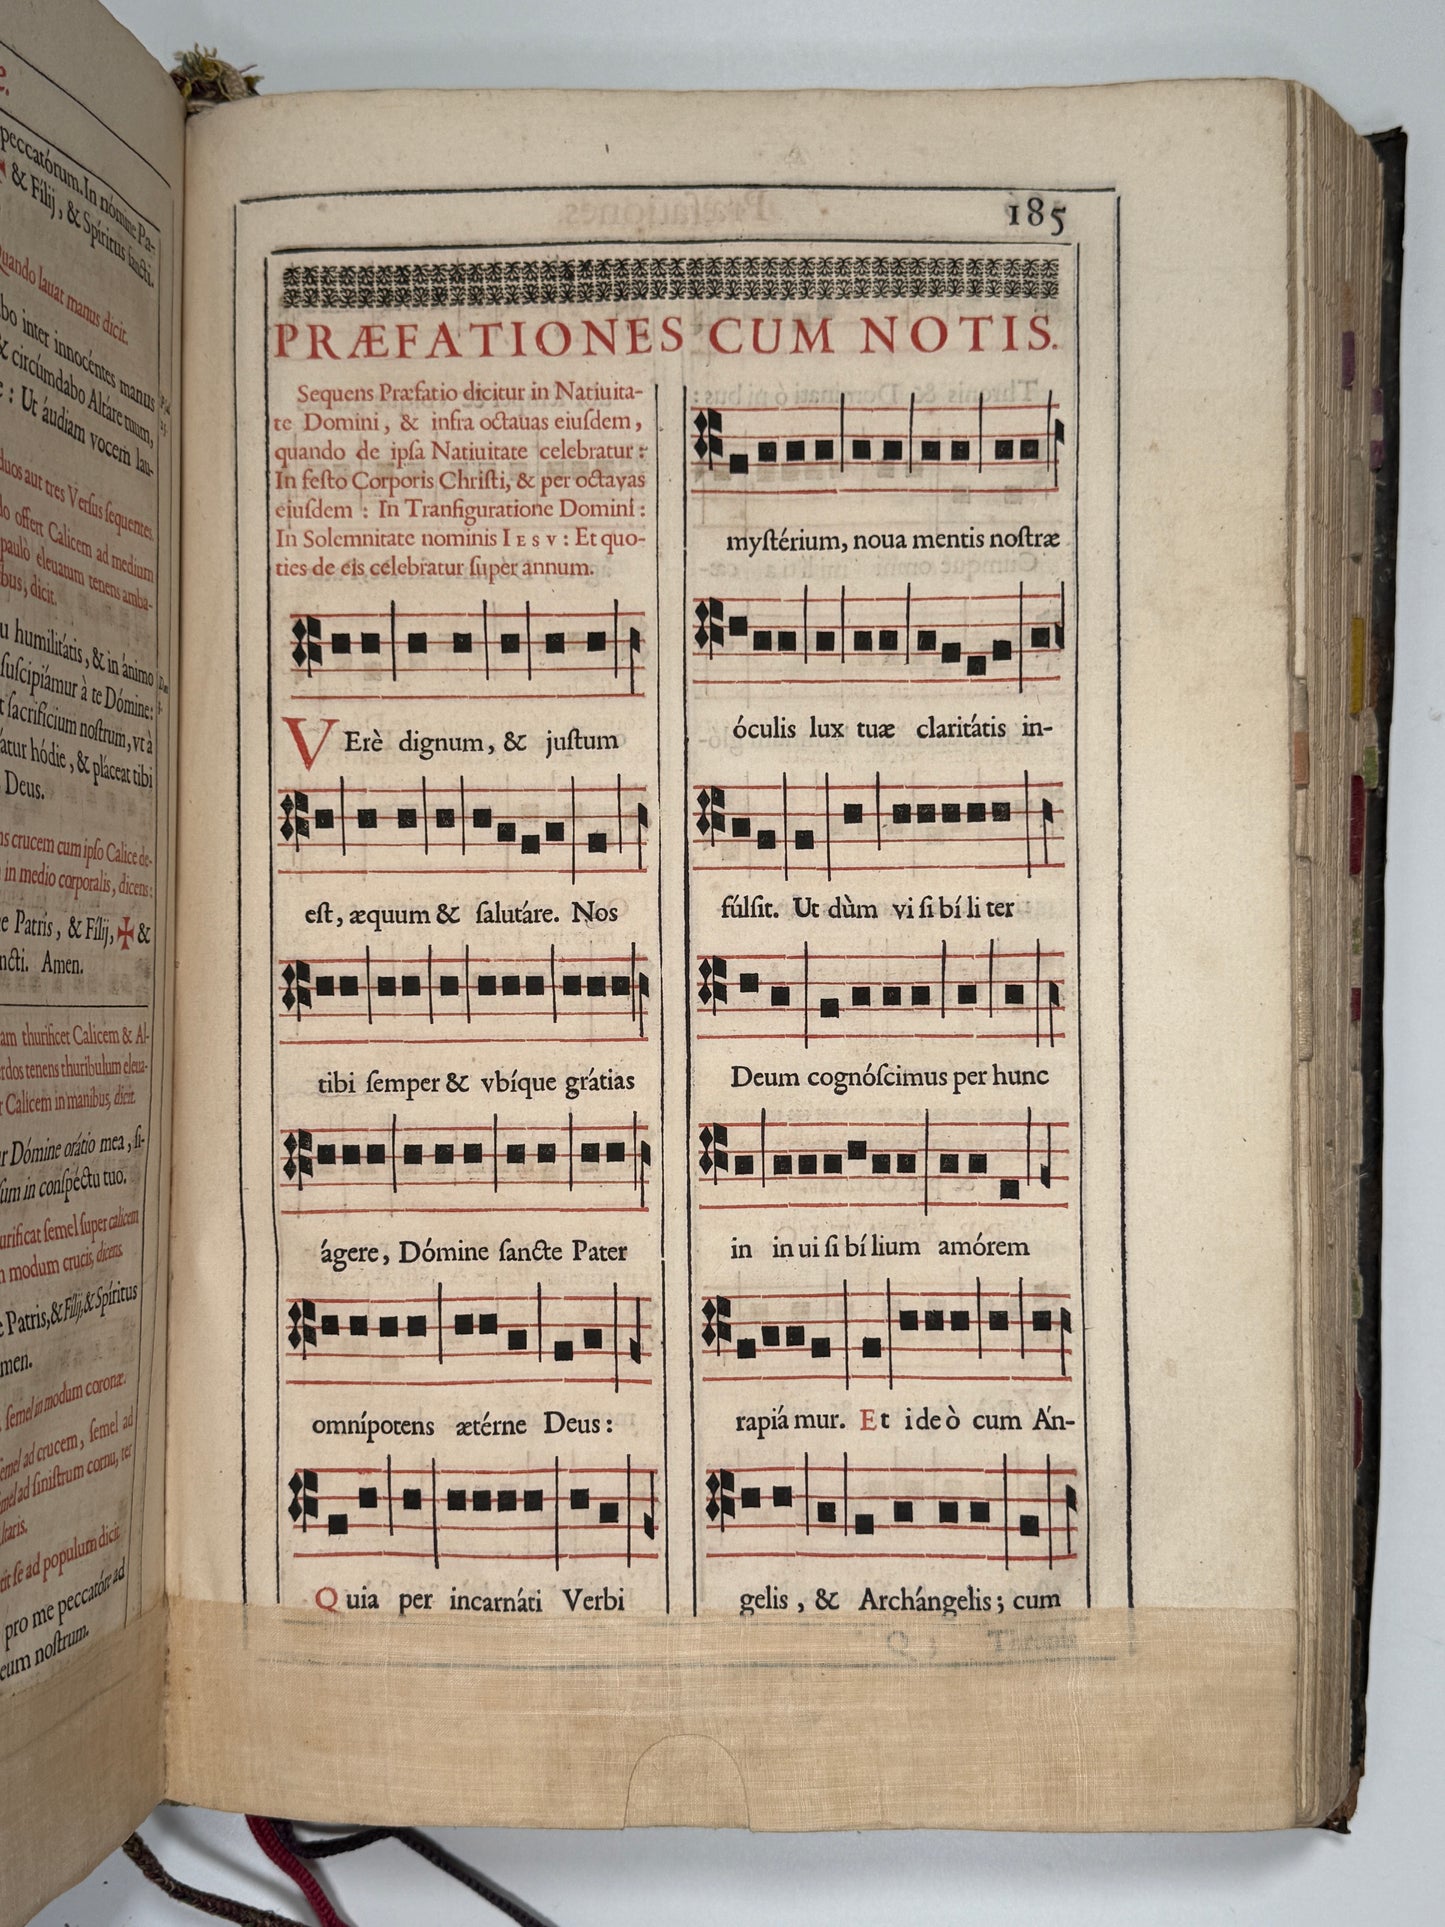 peccatórum. In nómine Pa-
& Fílij, & Spíritus sancti.
Quando lauat manus dicit.
bo inter innocéntes manus
& circúmdabo Altáre tuum,
: Ut áudiam vocem lau-
duos aut tres Versus sequentes.
do offert Calicem ad medium
paulò eleuatum tenens amba-
bus, dicit.
u humilitátis, & in ánimo
suscipiámur à te Dómine:
t sacrifícium nostrum, vt à
átur hódie, & pláceat tibi
Deus.
ns crucem cum ipso Calice de-
in medio corporalis, dicens:
e Patris, & Fílij, ✠ &
ncti. Amen.
am thurificet Calicem & Al-
rdos tenens thuribulum eleua-
r Calicem in manibus, dicit.
ur Dómine orátio mea, si-
sum in conspéctu tuo.
urificat semel super calicem
n modum crucis, dicens.
e Patris, & Fílij, & Spíritus
men.
semel in modum coronæ.
emel ad crucem, semel ad
mel ad sinistrum cornu, ter
ltaris.
tit se ad populum dicit:
pro me peccatóre ad
eum nostrum.
185
PRÆFATIONES CUM NOTIS.
Sequens Præfatio dicitur in Natiuita-
te Domini, & infra octauas eiusdem,
quando de ipsa Natiuitate celebratur:
In festo Corporis Christi, & per octauas
eiusdem : In Transfiguratione Domini:
In Solemnitate nominis IESV : Et quo-
ties de eis celebratur super annum.
VErè dignum, & justum
est, æquum & salutáre. Nos
tibi semper & vbíque grátias
ágere, Dómine sancte Pater
omnípotens ætérne Deus:
Quia per incarnáti Verbi
mystérium, noua mentis nostræ
óculis lux tuæ claritátis in-
fúlsit. Ut dùm vi si bí li ter
Deum cognóscimus per hunc
in in ui si bí lium amórem
rapiá mur. Et ideò cum Án-
gelis, & Archángelis; cum
Q 3 Thronis